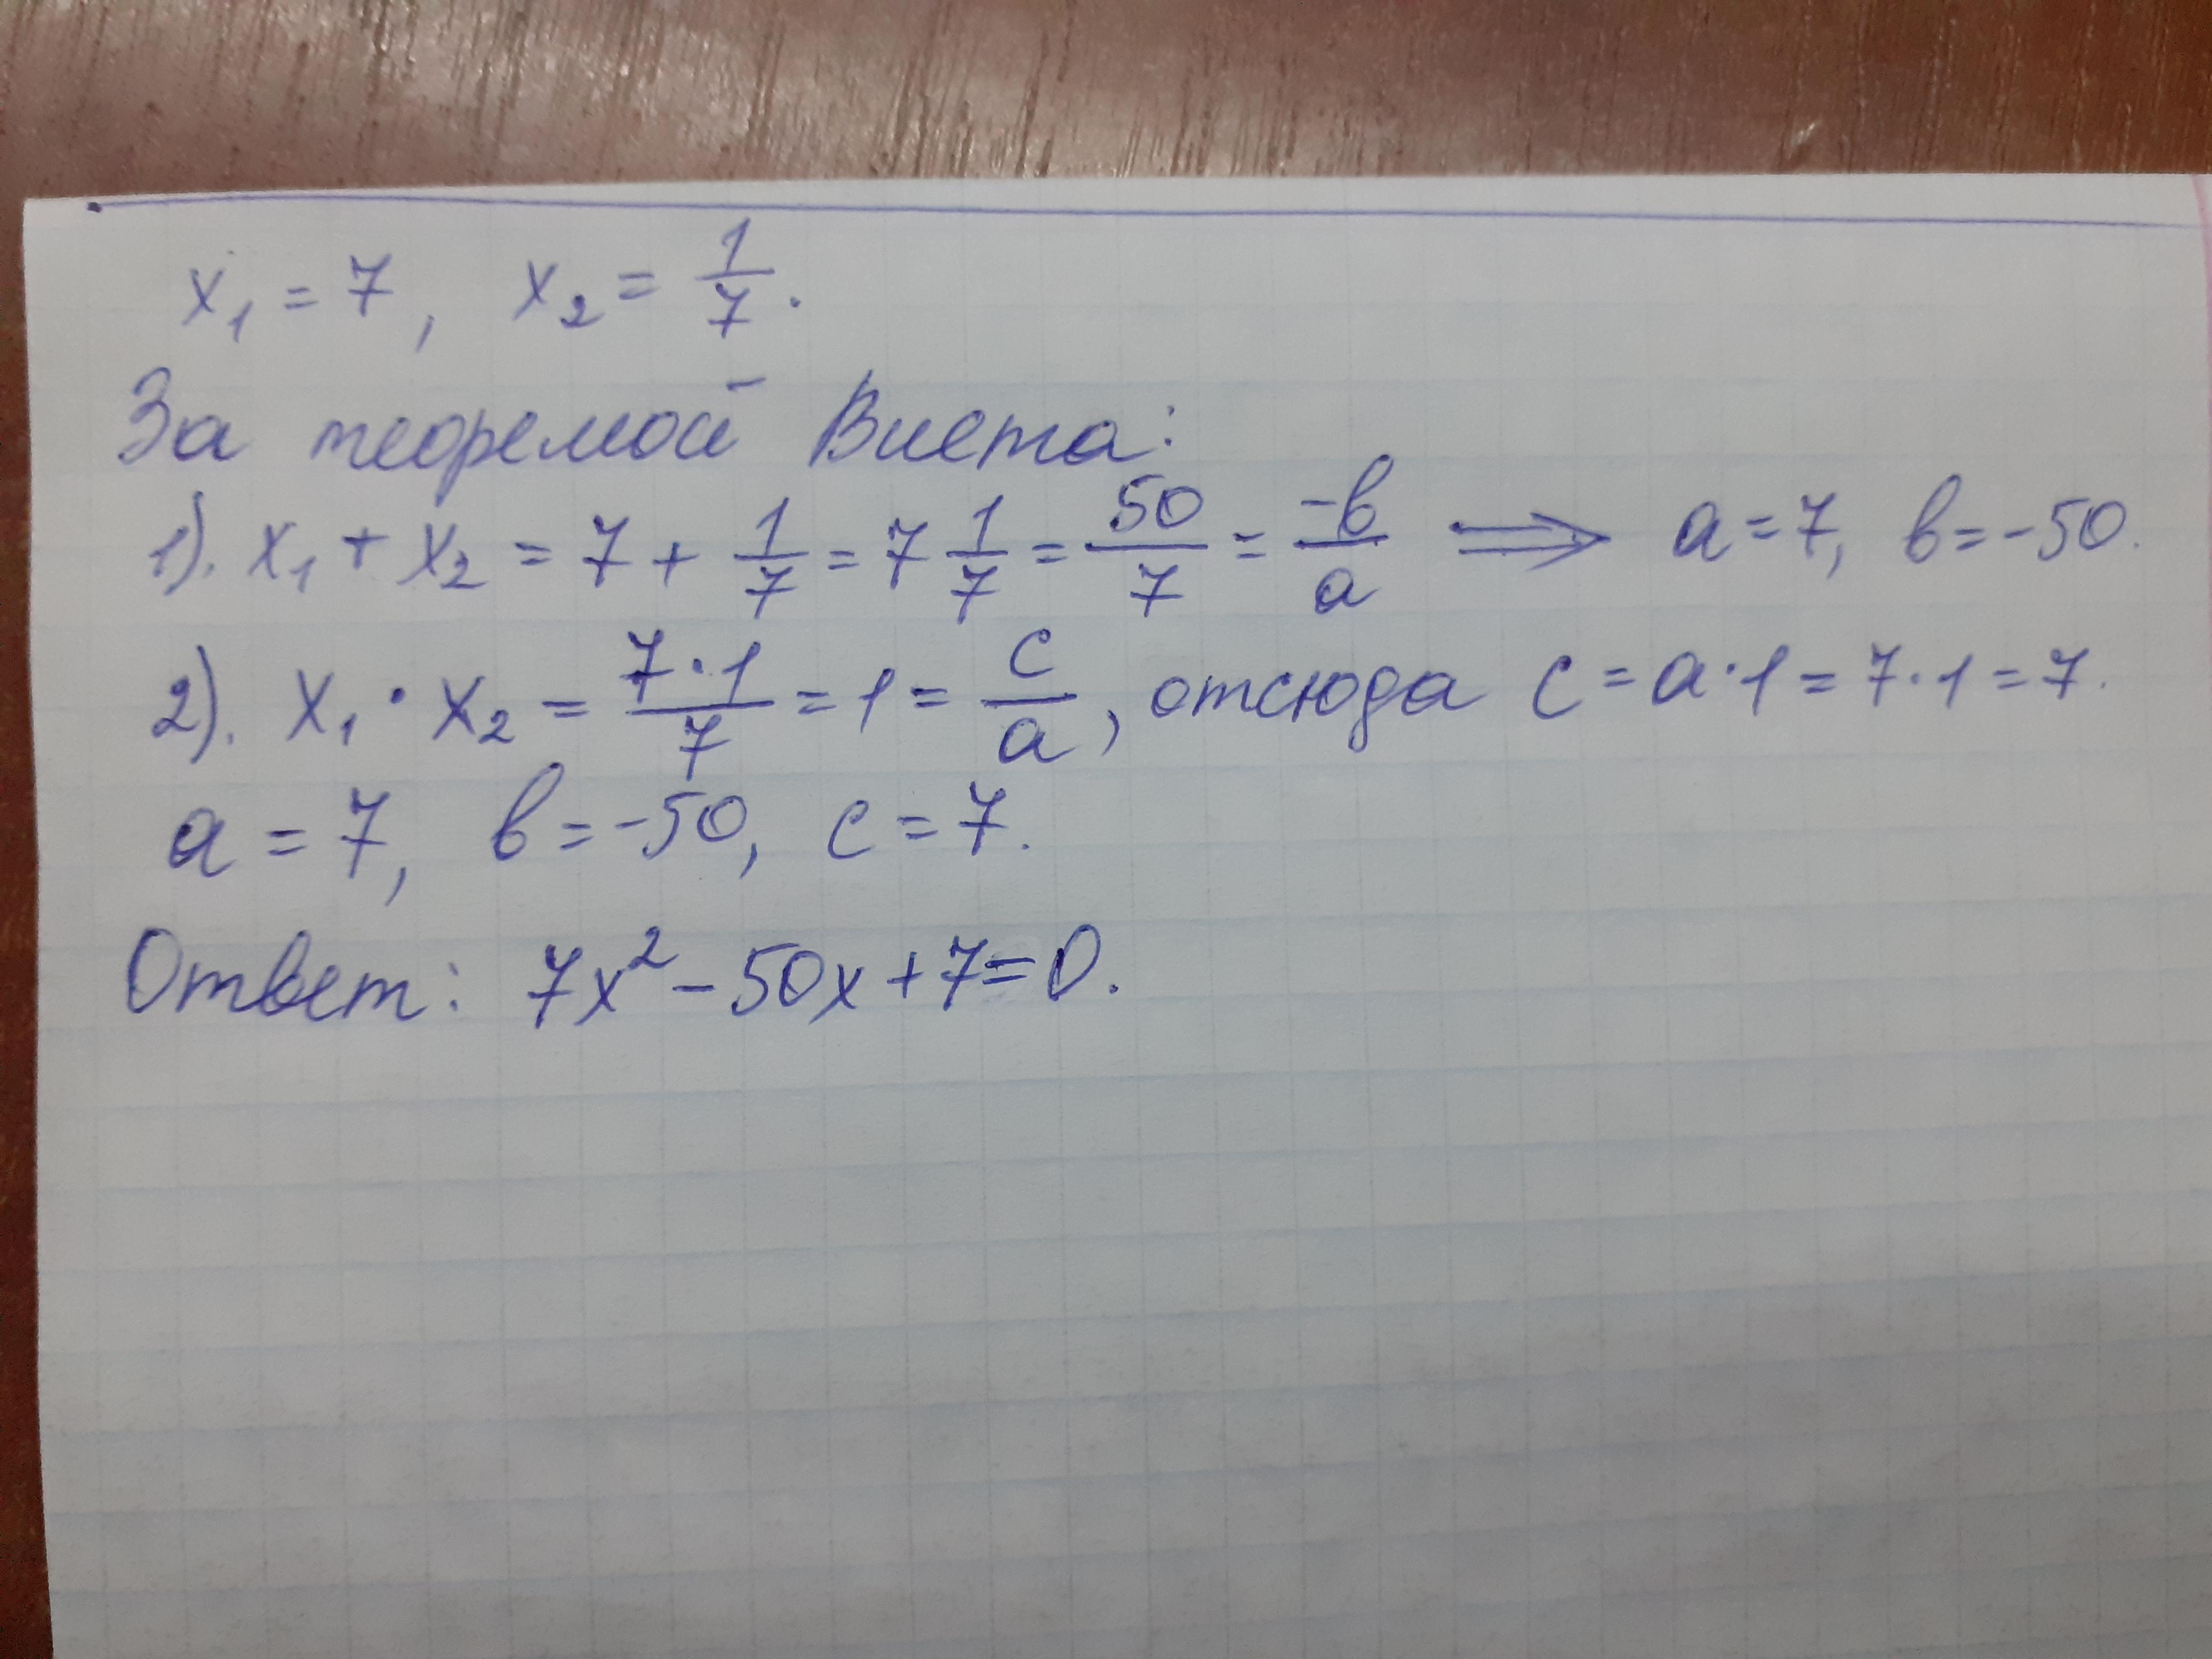 x₁ = 7, x₂ = 1/7.
За теоремой Виета:
1). x₁ + x₂ = 7 + 1/7 = 7 1/7 = 50/7 = -в/a ⟹ a = 7, в = -50.
2). x₁ · x₂ = 7·1/7 = 1 = c/a, отсюда c = a·1 = 7·1 = 7.
a = 7, в = -50, c = 7.
Ответ: 7x² - 50x + 7 = 0.